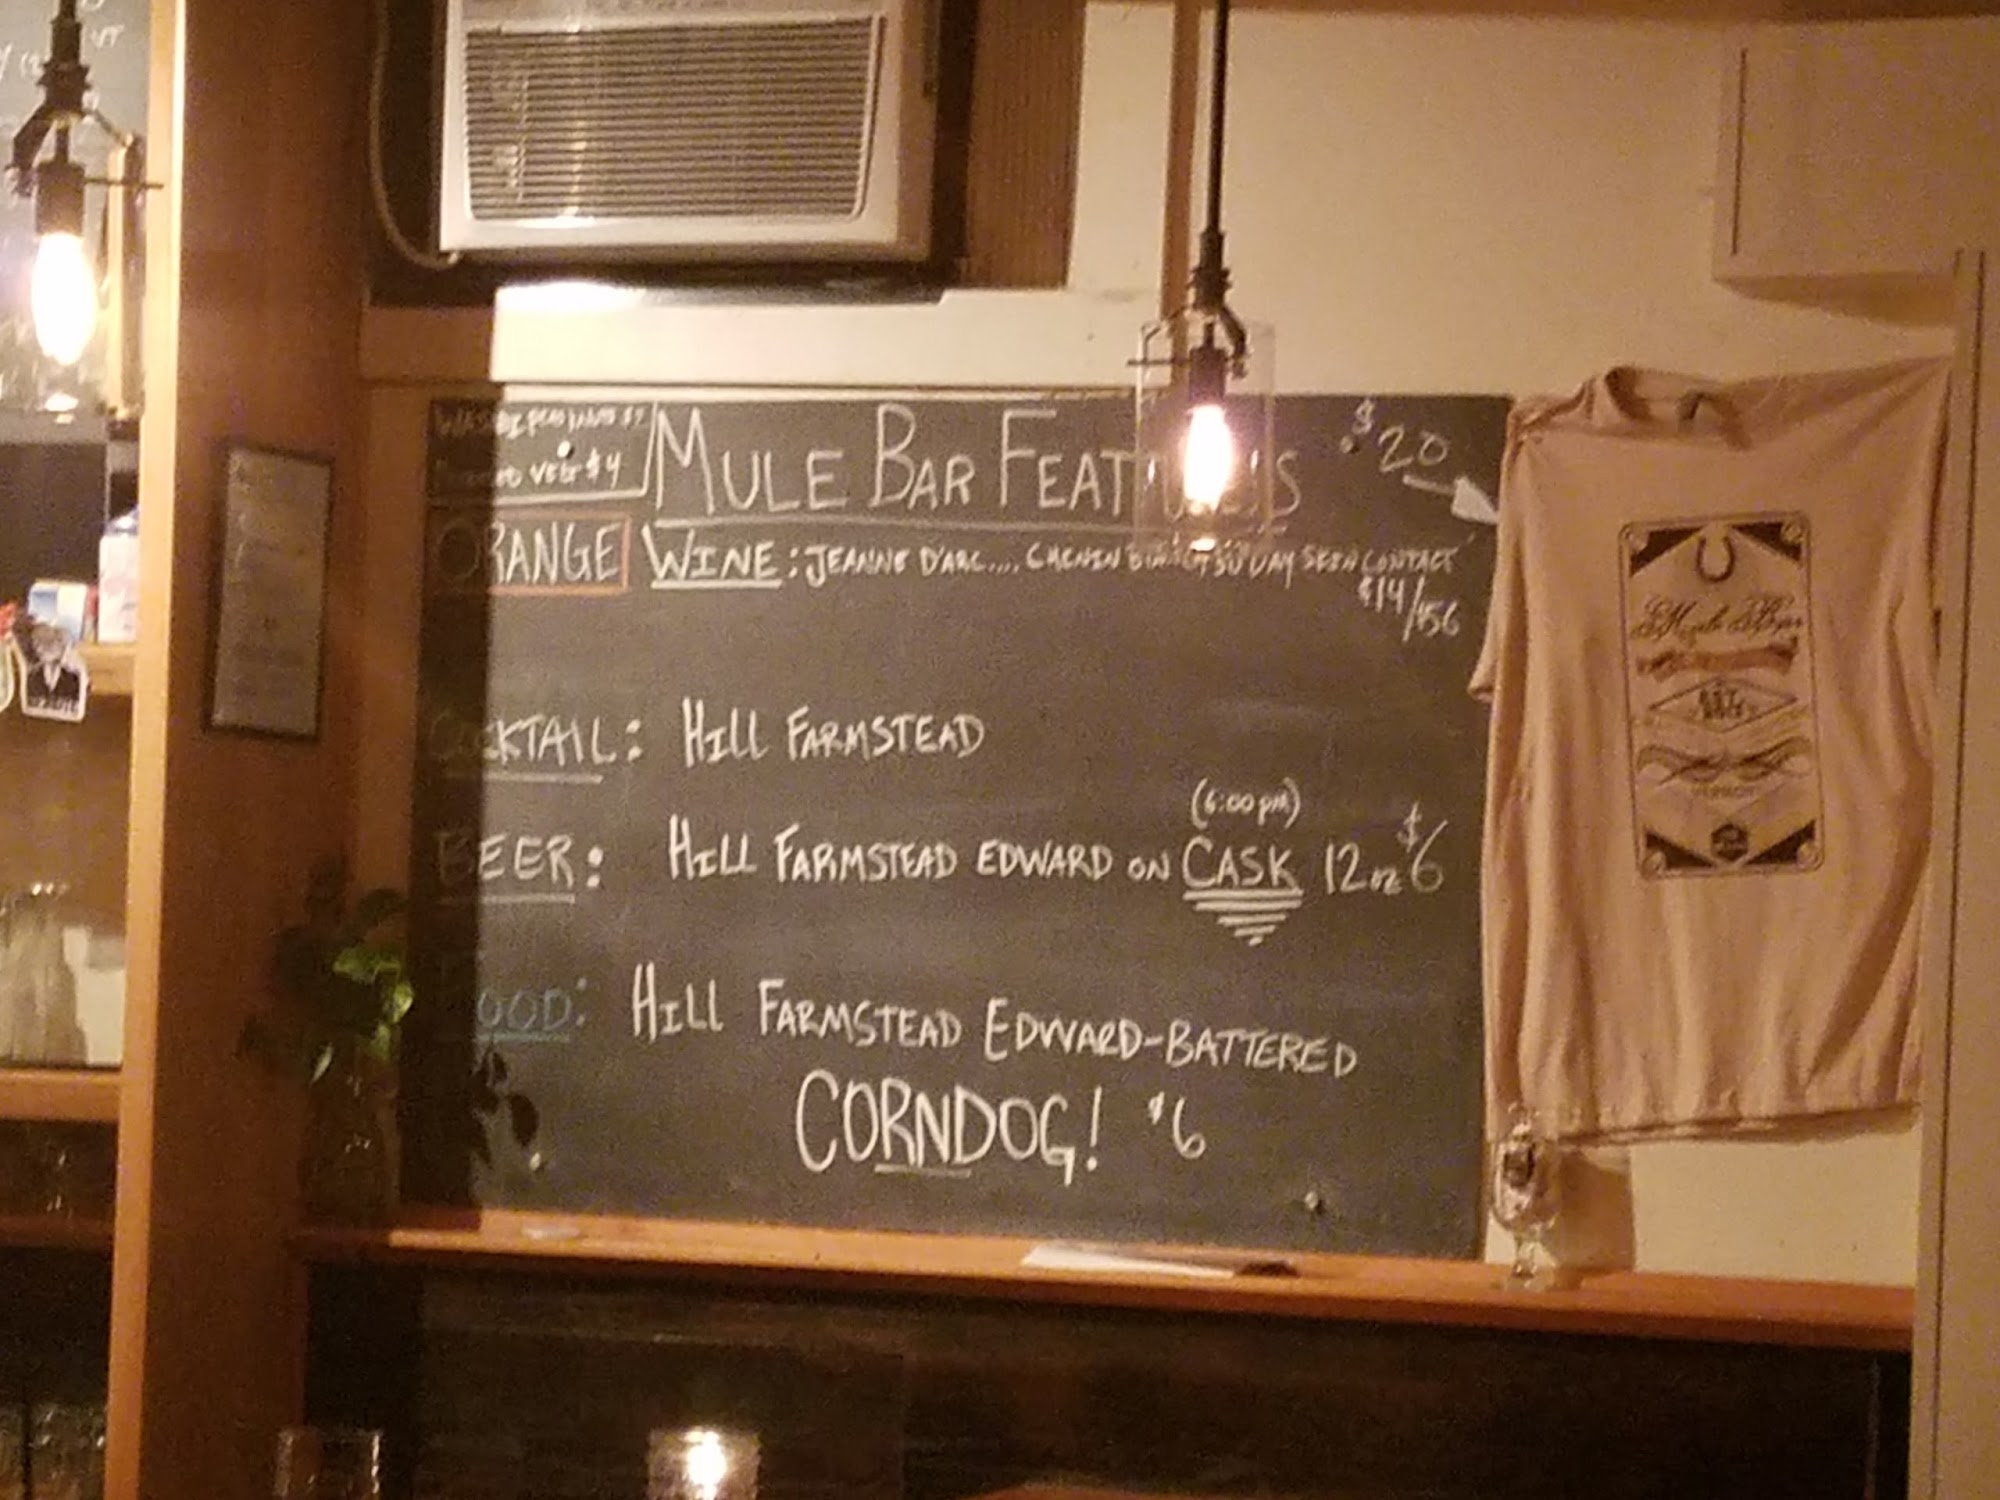 Wasabi Peas
$4
MULE BAR FEATURES
$20
ORANGE WINE: JEANNE D'ARC.... CHENIN 30 DAY SKIN CONTACT
$14/$56
COCKTAIL: HILL FARMSTEAD
(6:00 pm)
BEER: HILL FARMSTEAD EDWARD ON CASK 12oz $6
FOOD: HILL FARMSTEAD EDWARD-BATTERED
CORNDOG! $6
Mule Bar